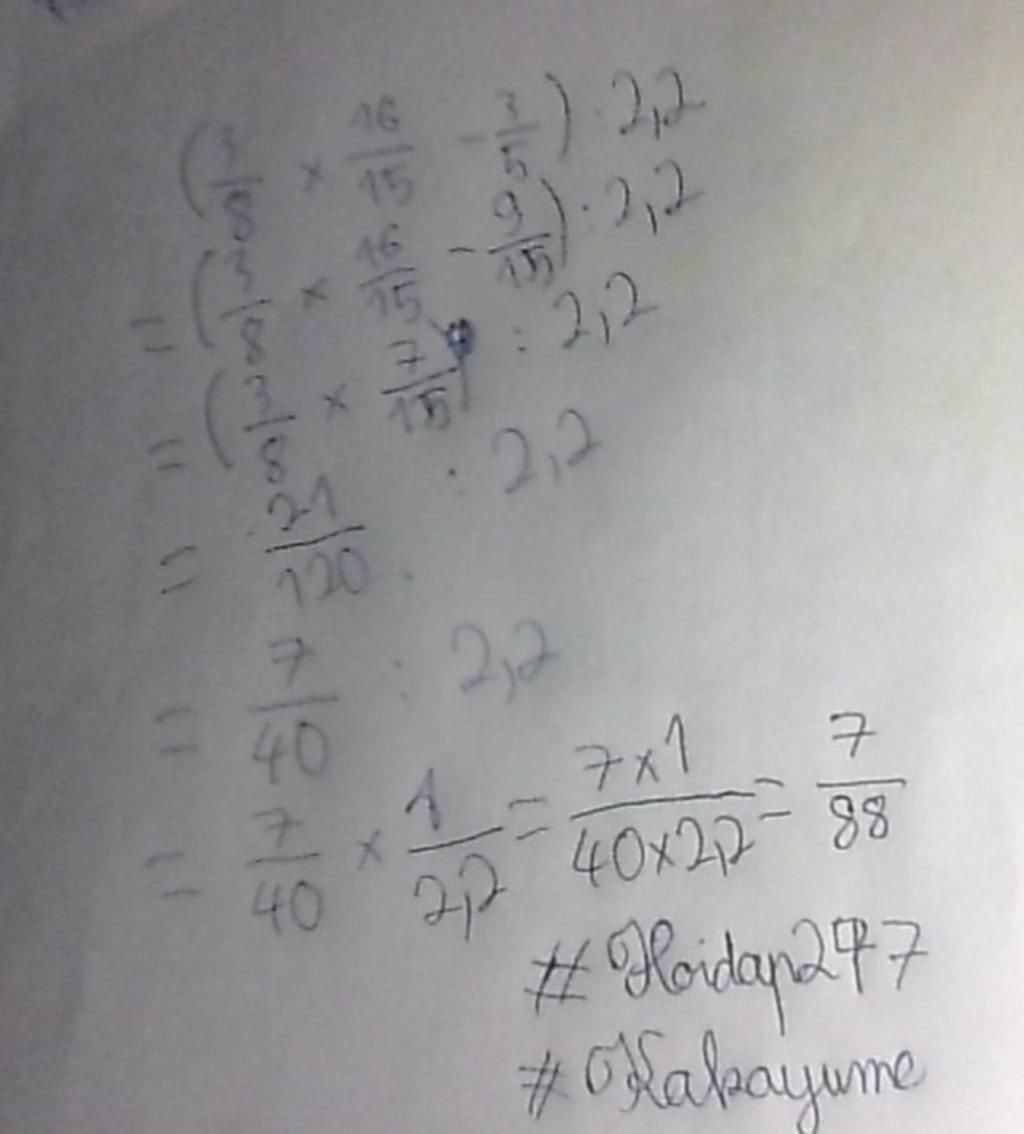 (3/8 × 16/15 - 3/5) : 2,2
= (3/8 × 16/15 - 9/15) : 2,2
= (3/8 × 7/15) : 2,2
= 21/120 : 2,2
= 7/40 : 2,2
= 7/40 × 1/2,2 = 7×1/40×2,2 = 7/88
#Hoidap247
#Kakayume